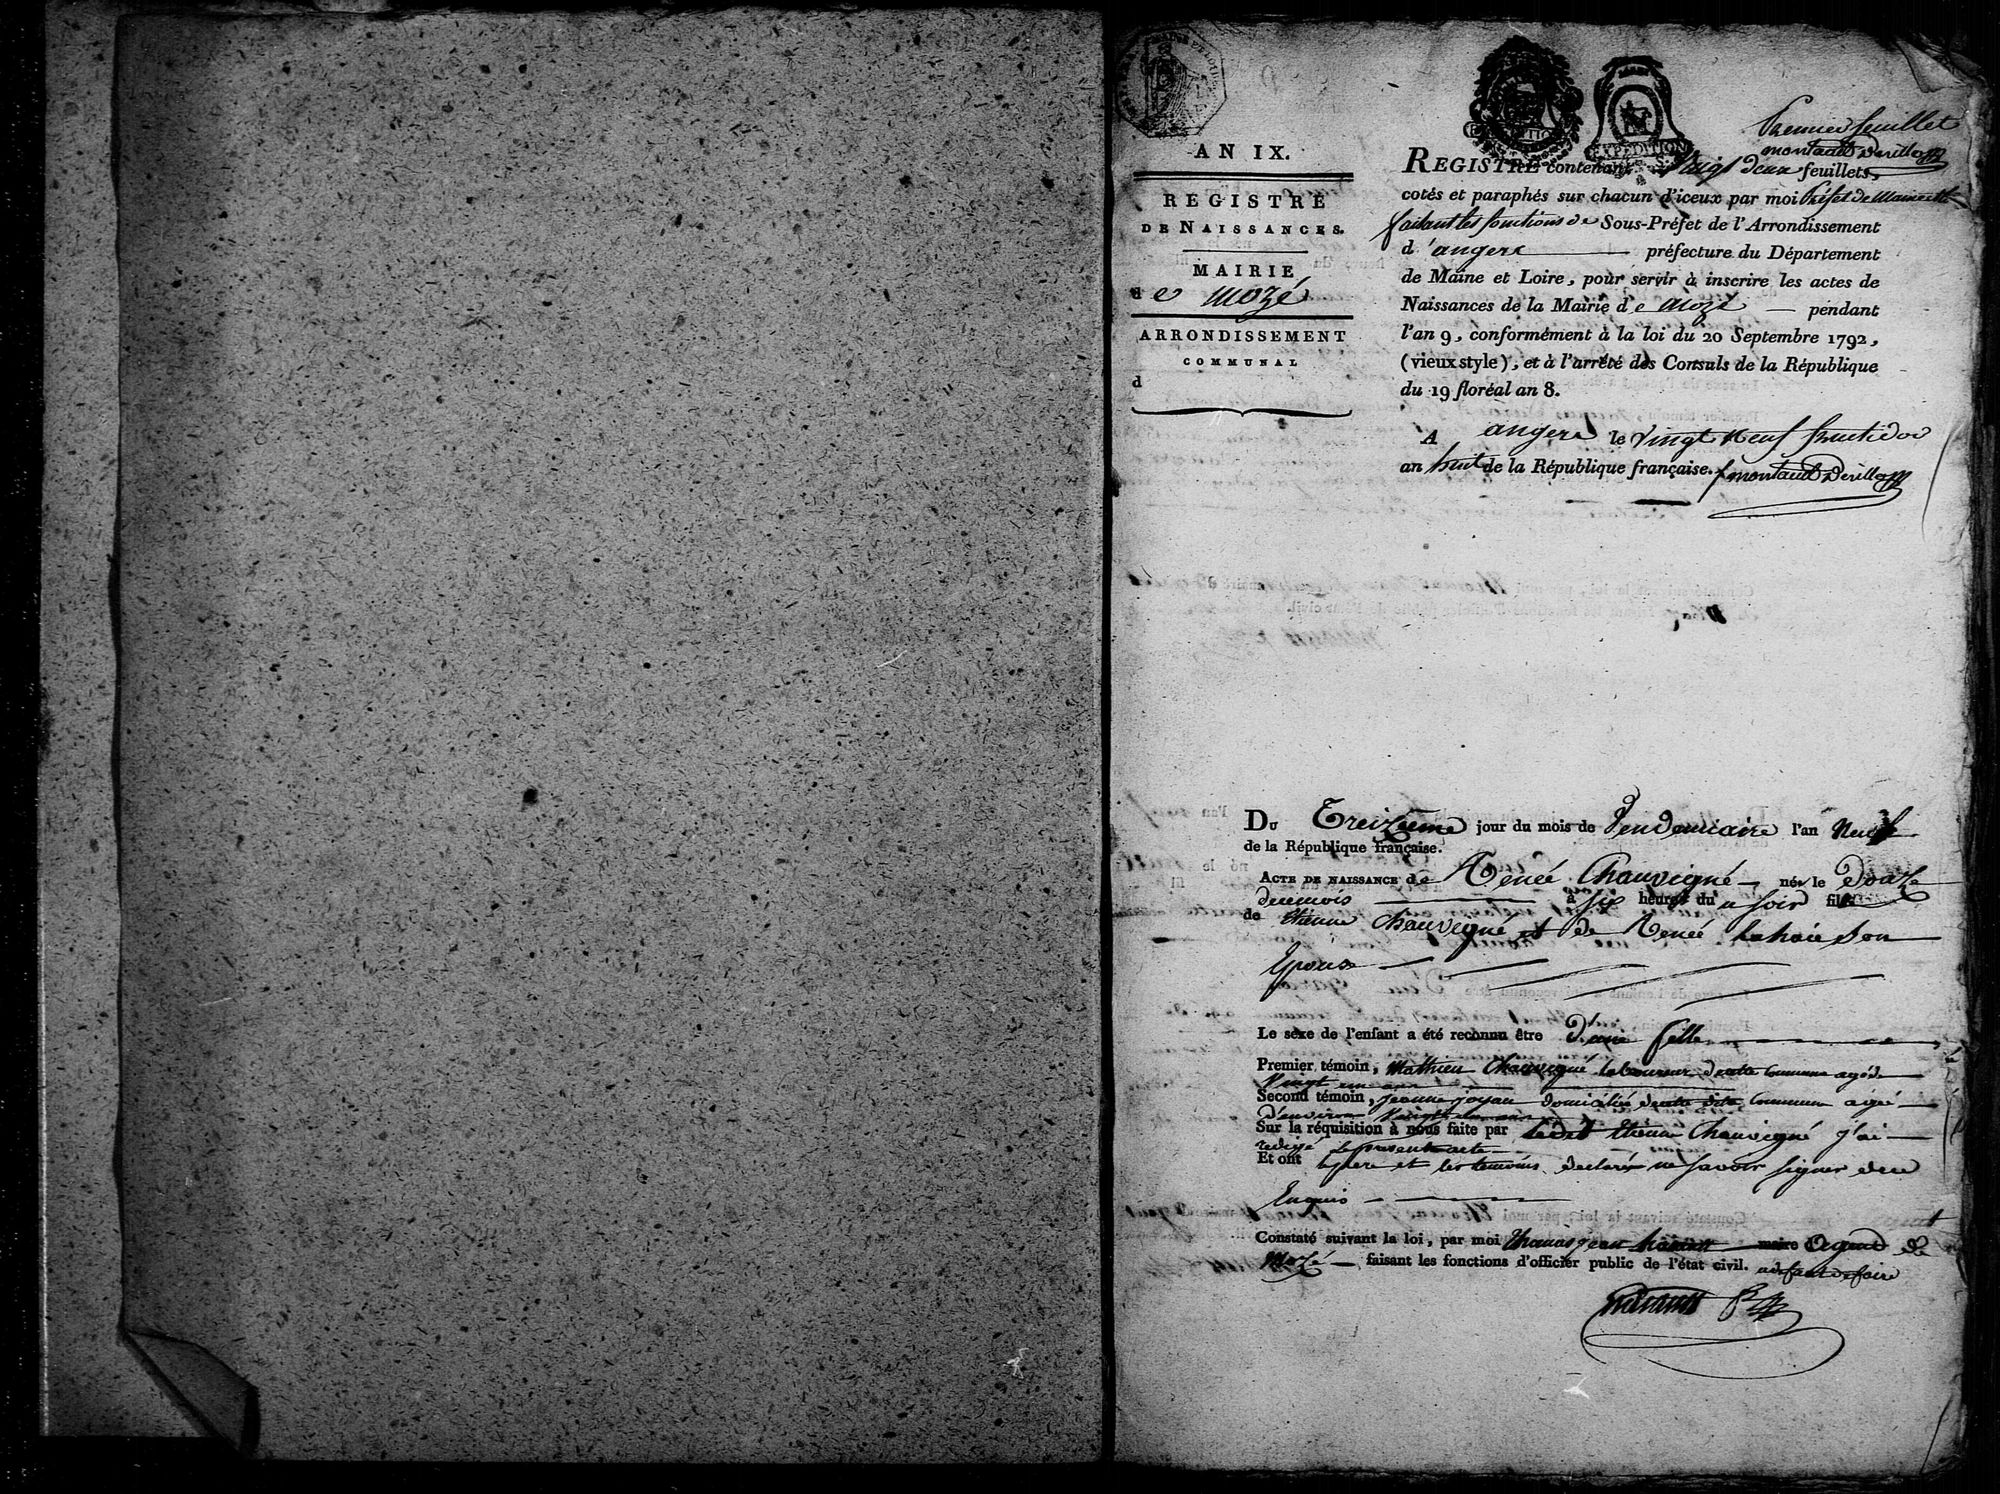 AN IX.
REGISTRE
DE NAISSANCES.
MAIRIE
de mozé
ARRONDISSEMENT
COMMUNAL
d
EXPÉDITION
Premier feuillet
montault Desilles
REGISTRE contenant vingt deux feuillets,
cotés et paraphés sur chacun d'iceux par moi Préfet de Maine et Loire
faisant les fonctions de Sous-Préfet de l'Arrondissement
d'angers préfecture du Département
de Maine et Loire, pour servir à inscrire les actes de
Naissances de la Mairie de mozé pendant
l'an 9, conformément à la loi du 20 Septembre 1792,
(vieux style), et à l'arrêté des Consuls de la République
du 19 floréal an 8.
A angers le vingt neuf fructidor
an huit de la République française. montault Desilles
Du Treizieme jour du mois de Vendemiaire l'an Neuf
de la République française.
ACTE DE NAISSANCE de Renée Chauvigné née le Douze
du ce mois à six heures du soir fille
de Etienne Chauvigné et de Renée Lahaie son
Epouse
Le sexe de l'enfant a été reconnu être d'une fille
Premier témoin, Mathieu Chauvigné laboureur de cette commune agé de
Vingt un ans
Second témoin, jeanne joyau domiciliée de cette dite Commune agé
d'environ Vingt
Sur la réquisition à nous faite par ledit Etienne Chauvigné j'ai
redigé le present acte
Et ont le pere et les temoins declaré ne savoir signer de ce
Enquis
Constaté suivant la loi, par moi thomas jean maire agent de
Mozé faisant les fonctions d'officier public de l'état civil. a defaut de faire